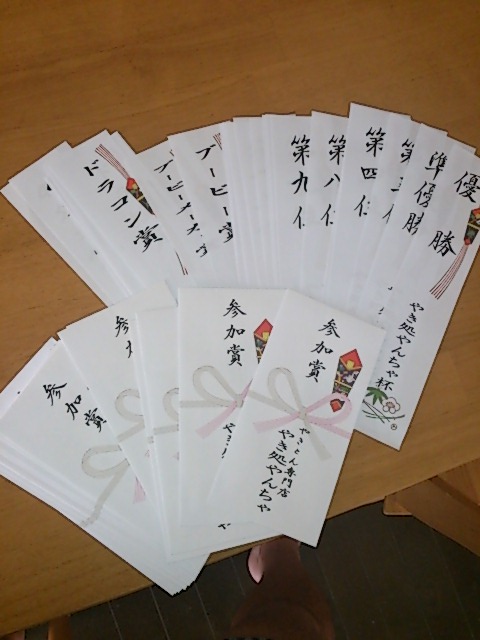 優勝
やき処やんちゃ杯
準優勝
第四位
第八位
第九位
ブービー賞
ブービーメーカ
ドラコン賞
参加賞
やきとん専門店
やき処やんちゃ
参加賞
参加賞
参加賞